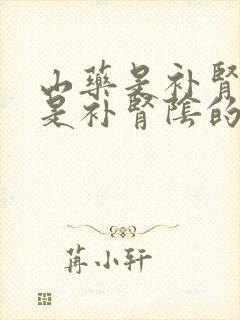 山藥是补腎
是补腎陰的
苒小轩